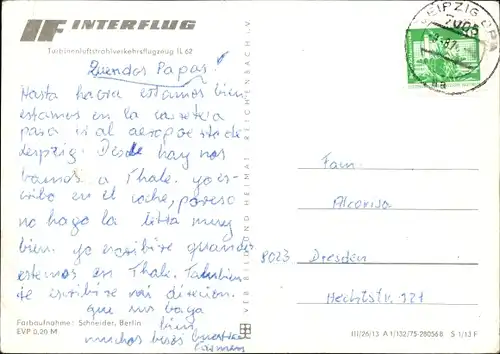 INTERFLUG
Turbinenluftstrahlverkehrsflugzeug IL 62
Queridos Papas!
Hasta havra estamos bien
estamos en la carretera
para ir al aeropuerto de
Leipzig. Desde hay nos
bamos a Thale. yo es-
cribo en el coche, por eso
no hago la letra muy
bien. yo escribire quando
estemos en Thale. Tambien
te escribire mi direcion.
que os baya
bien
muchos besos vuestra
Carmen
Farbaufnahme: Schneider, Berlin
EVP 0,20 M
VERLAG BILD UND HEIMAT REICHENBACH I. V.
LEIPZIG BPA
7005
Fam.
8023 Dresden
Hechtstr. 121
III/26/13 A 1/132/75-280568 S 1/13 F